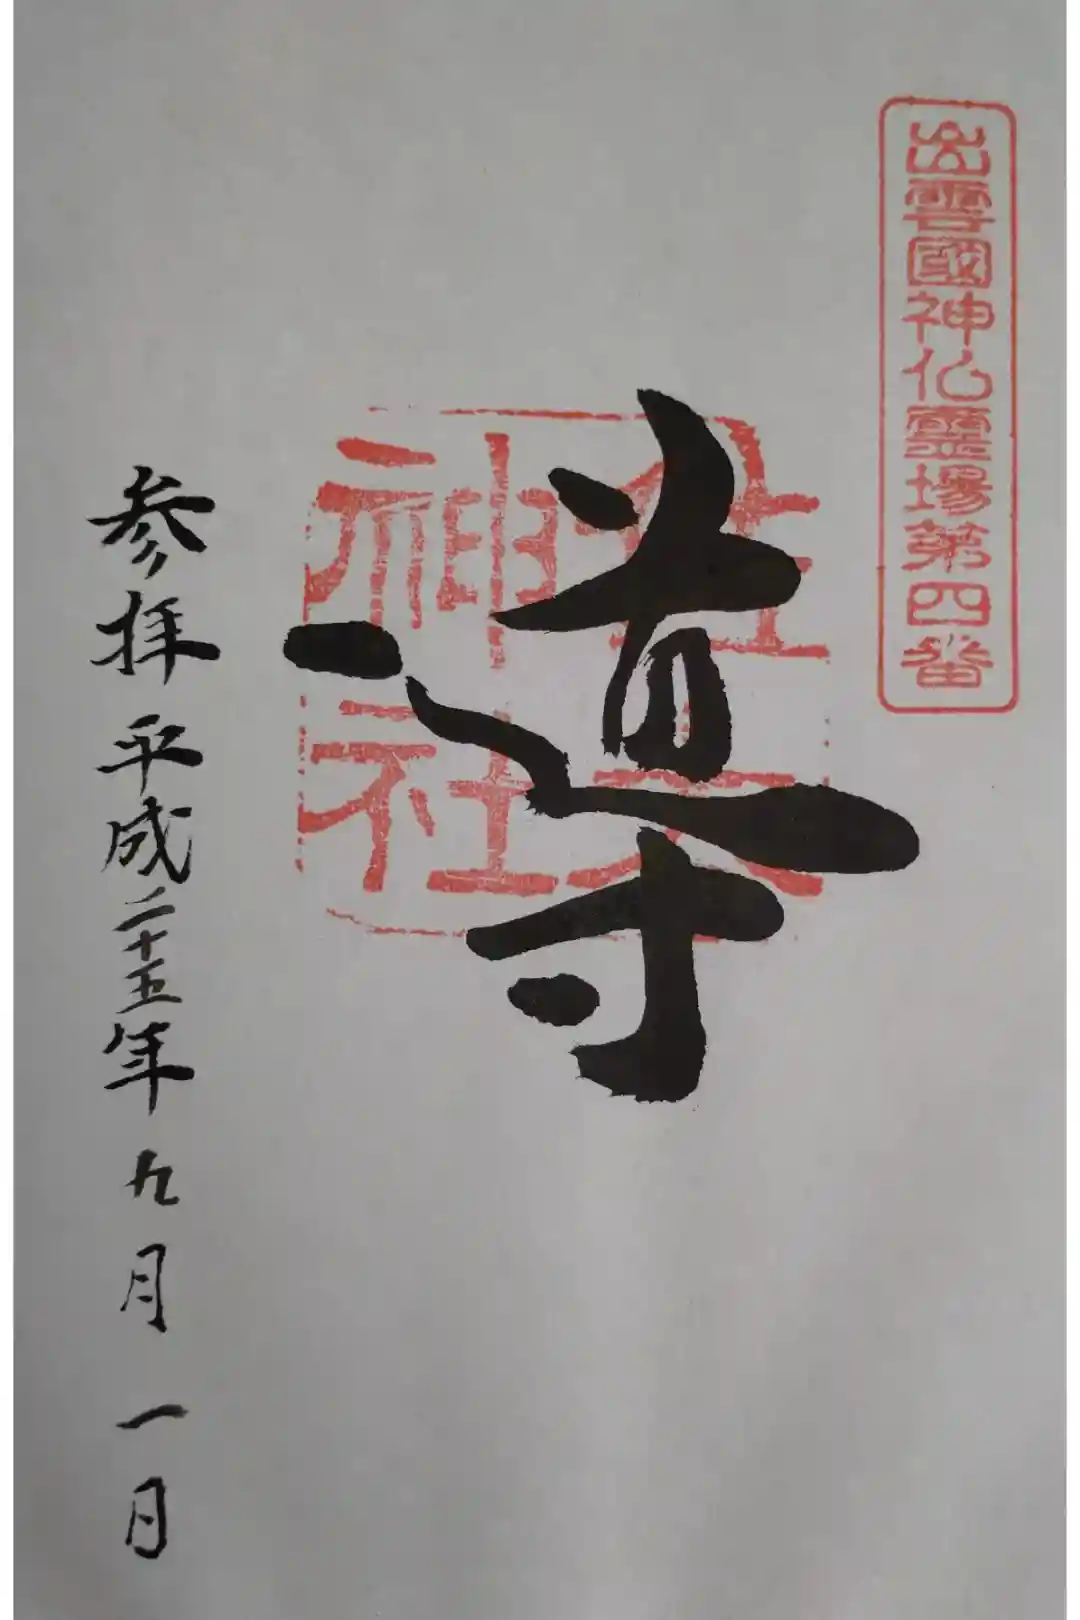 出雲國神仏霊場第四番
導
佐太
神社
参拝 平成二十五年 九月 一日